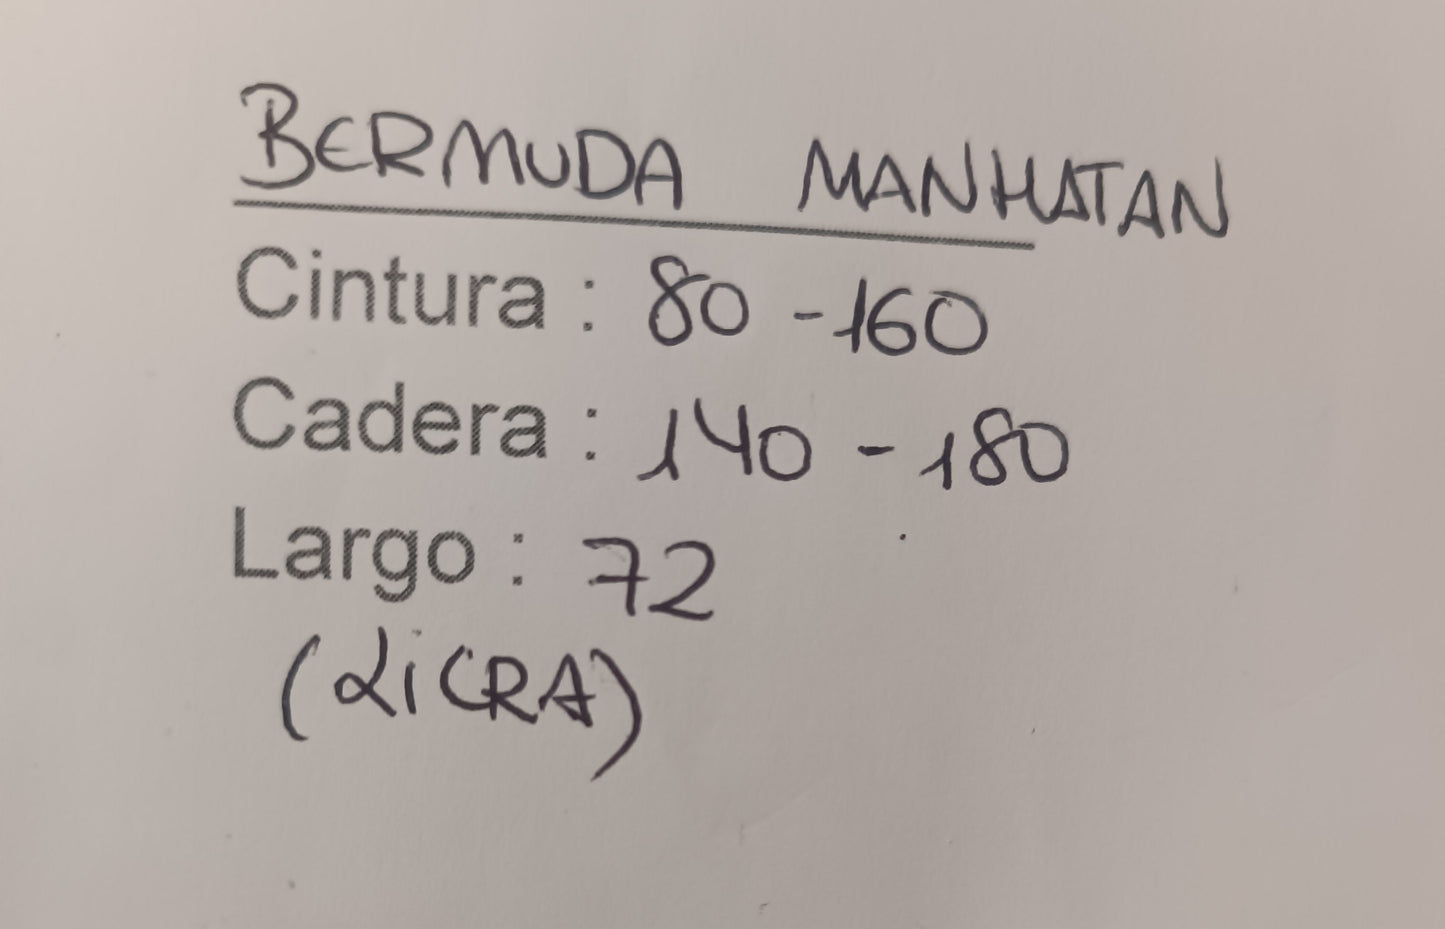 BERMUDA MANHATAN
Cintura : 80 - 160
Cadera : 140 - 180
Largo : 72
(LiCRA)